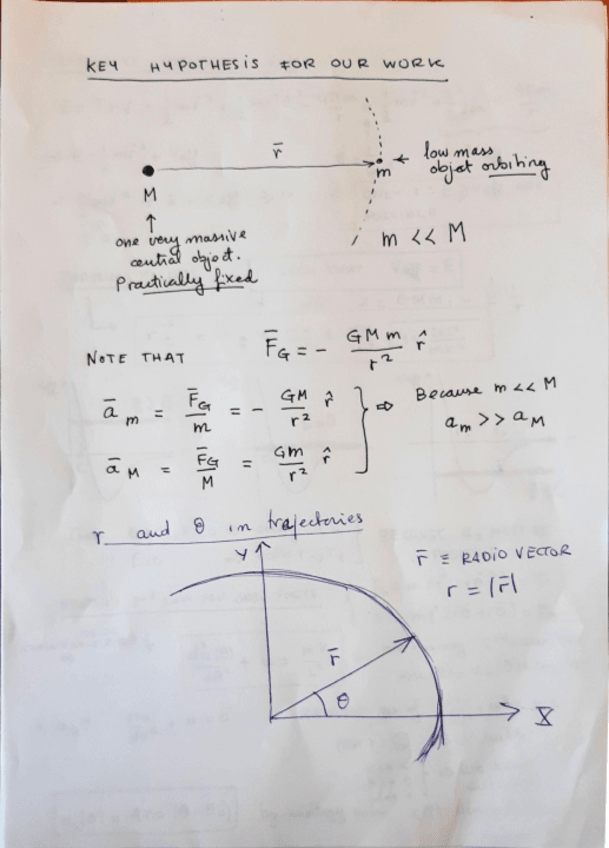 KEY HYPOTHESIS FOR OUR WORK
r̄
m
← low mass
objet orbiting
M
↑
one very massive
central object.
Practically fixed
m << M
NOTE THAT F̄G = - GMm/r² r̂
ām = F̄G/m = - GM/r² r̂
āM = F̄G/M = Gm/r² r̂
⇒ Because m << M
am >> aM
r and θ in trajectories
Y
r̄ ≡ RADIO VECTOR
r = |r̄|
r̄
θ
X